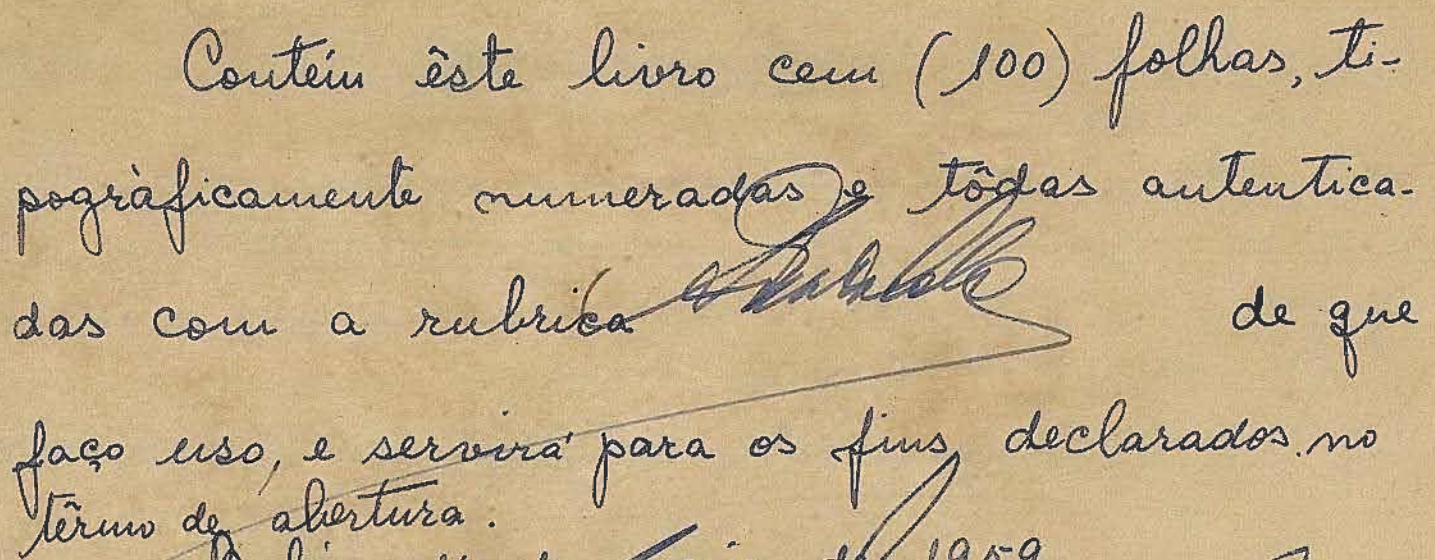 Contém êste livro cem (100) folhas, ti-
pogràficamente numeradas e tôdas autentica-
das com a rubrica de que
faço uso, e servirá para os fins declarados no
têrmo de abertura.
de 1959